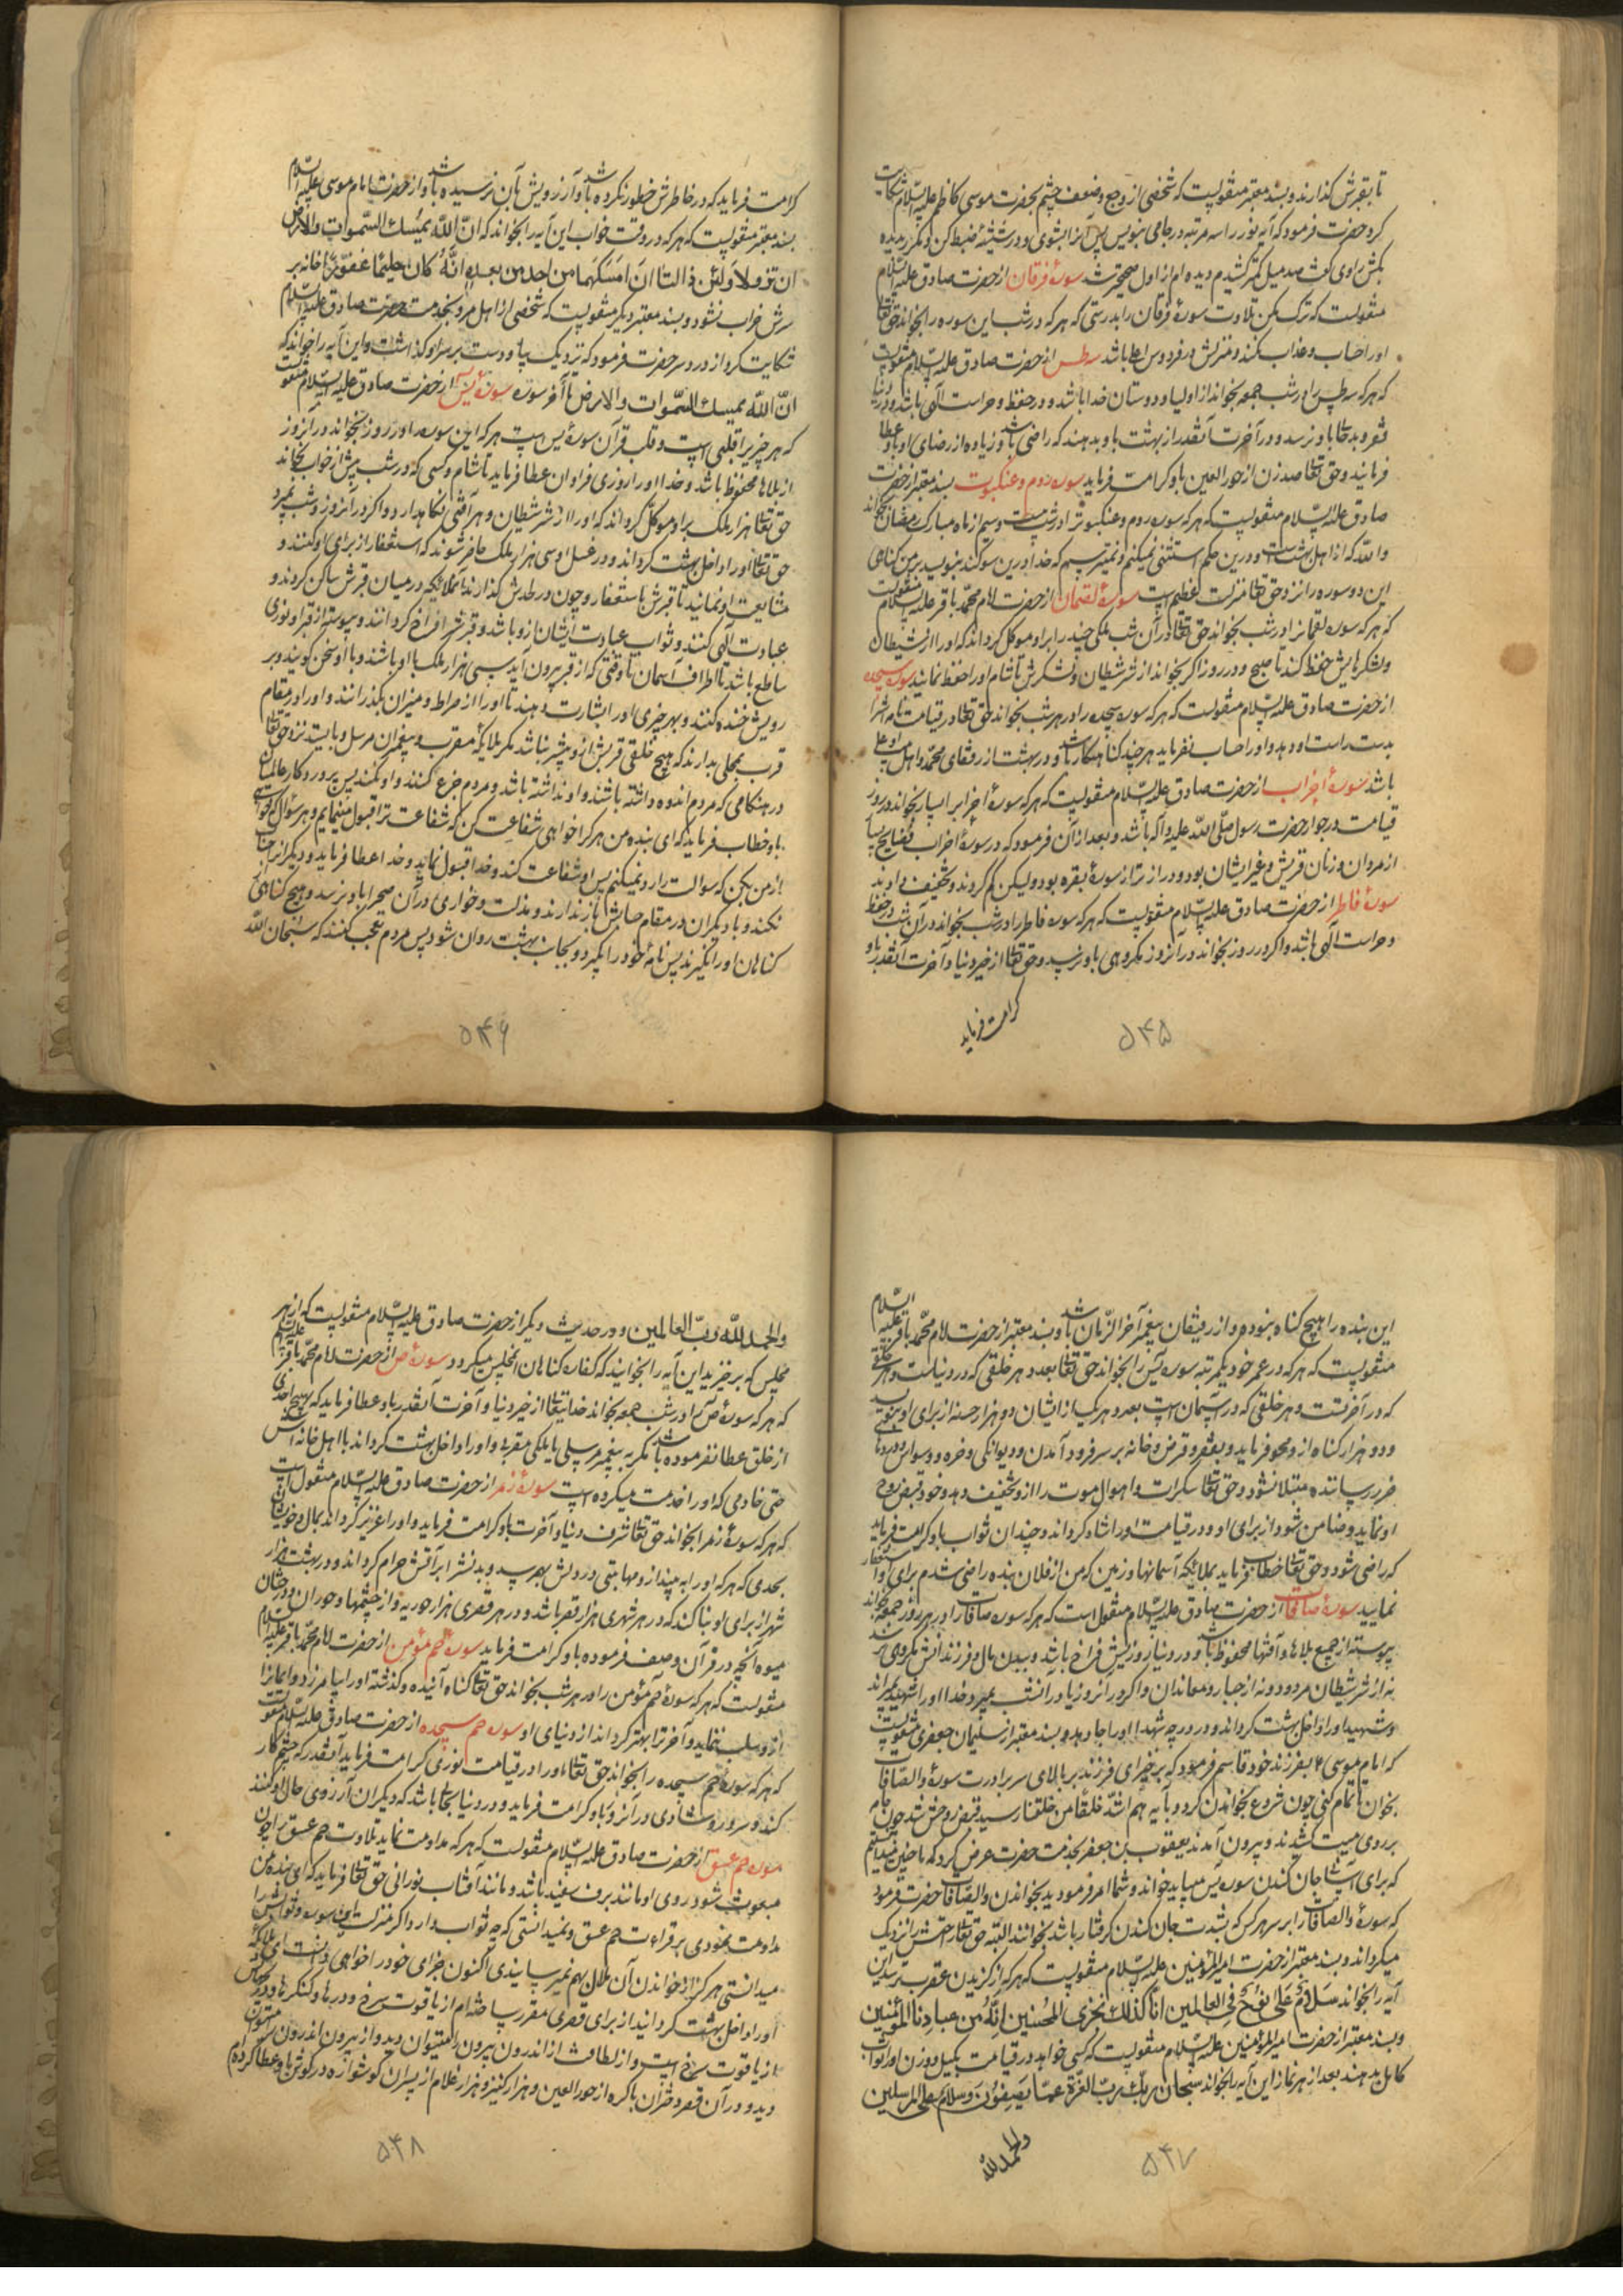 تا بقبرش گذارند و بسند معتبر منقولیست که شخصی از وجع و ضعف چشم بحضرت موسی کاظم علیه السّلام شکایت
کرد حضرت فرمود که آیه نور را سه مرتبه در جامی بنویس پس آنرا بشوی و در شیشهٔ ضبط کن و بدیده
بکش راوی گفت صد میل کمتر کشیدم دیده ام از اول صحیحتر شد سورهٔ فرقان از حضرت صادق علیه السّلام
منقولیست که ترک مکن تلاوت سورهٔ فرقان را بدرستی که هر که در شب این سوره را بخواند حق تعالی
او را حساب و عذاب نکند و منزلش در فردوس اعلا باشد سه طس از حضرت صادق علیه السّلام منقولیست
که هر که سه طس را در شب جمعه بخواند از اولیا و دوستان خدا باشد و در حفظ و حراست الهی باشد و در دنیا
فقر و بدحالی باو نرسد و در آخرت آنقدر از بهشت باو بدهند که راضی باشد و زیاده از رضای او باو عطا
فرمایند و حق تعالی صد زن از حورالعین باو کرامت فرماید سوره روم و عنکبوت بسند معتبر از حضرت
صادق علیه السّلام منقولیست که هر که سوره روم و عنکبوت را در شب بیست و سیم از ماه مبارک رمضان بخواند
والله که از اهل بهشت است و درین حکم استثنی نمیکنم و نمیترسم که خدا درین سوگند بنویسد بر من گناهی
این دو سوره را نزد حق تعالی منزلت عظیم است سورهٔ لقمان از حضرت امام محمّد باقر علیه السّلام منقولیست
که هر که سوره لقمان را در شب بخواند حق تعالی در آن شب ملکی چند را بر او موکل گرداند که او را از شیطان
و لشکرهایش حفظ کند تا صبح و در روز اگر بخواند از شر شیطان و لشکرش تا شام او را حفظ نمایند سوره سجده
از حضرت صادق علیه السّلام منقولیست که هر که سوره سجده را در هر شب بخواند حق تعالی در قیامت نامه اش را
بدست راست او دهد و او را حساب نفرماید هر چند گناهکار باشد و در بهشت از رفقای محمّد و اهل بیت او علیه
باشد سورهٔ احزاب از حضرت صادق علیه السّلام منقولیست که هر که سورهٔ احزاب را بسیار بخواند در روز
قیامت در جوار حضرت رسول صلّی الله علیه و آله باشد و بعد از آن فرمود که در سورهٔ احزاب فضایح بسیار
از مردان و زنان قریش و غیر ایشان بود و دراز تر از سورهٔ بقره بود ولیکن کم کردند و تخفیف دادند
سورهٔ فاطر از حضرت صادق علیه السّلام منقولیست که هر که سوره فاطر را در شب بخواند در آن شب در حفظ
و حراست الهی باشد و اگر در روز بخواند در آنروز مکروهی باو نرسد و حق تعالی از خیر دنیا و آخرت آنقدر باو
کرامت فرماید
۵۴۵
کرامت فرماید که در خاطرش خطور نکرده باشد و آرزویش بآن نرسیده باشد و از حضرت امام موسی علیه السّلام
بسند معتبر منقولیست که هر که در وقت خواب این آیه را بخواند که انّ اللّه یمسک السّموات والارض
ان تزولا ولئن زالتا ان امسکهما من احد من بعده انّه کان حلیما غفورا خانه بر
سرش خراب نشود و بسند معتبر دیگر منقولیست که شخصی از اهل مرو بخدمت حضرت صادق علیه السّلام
شکایت کرد از درد سر حضرت فرمود که نزدیک بیا و دست بر سر او گذاشت و این آیه را خواند که
انّ اللّه یمسک السّموات والارض تا آخر سوره سورهٔ یس از حضرت صادق علیه السّلام منقولست
که هر چیز را قلبی است و قلب قرآن سورهٔ یس است هر که این سوره را در روز بخواند در آنروز
از بلاها محفوظ باشد و خدا او را روزی فراوان عطا فرماید تا شام و کسی که در شب پیش از خواب بخواند
حق تعالی هزار ملک بر او موکّل گرداند که او را از شر شیطان و هر آفتی نگاهدارد و اگر در آنروز و شب بمیرد
حق تعالی او را داخل بهشت گرداند و در غسل او سی هزار ملک حاضر شوند که استغفار از برای او کنند و
مشایعت او نمایند تا قبرش باستغفار و چون در لحدش گذارند آن ملائکه در میان قبرش ساکن گردند و
عبادت الهی کنند و ثواب عبادت ایشان از او باشد و قبرش را فراخ گردانند و پیوسته از قبر او نوری
ساطع باشد تا اطراف آسمان تا وقتی که از قبر بیرون آید سی هزار ملک با او باشند و با او سخن گویند و بر
رویش خنده کنند و بهر چیزی او را بشارت دهند تا او را از صراط و میزان بگذرانند و او را در مقام
قرب محلی بدارند که هیچ خلقی قربش از او بیشتر نباشد مگر ملائکهٔ مقرب و پیغمبران مرسل و با ایستد نزد حق تعالی
در هنگامی که مردم اندوه داشته باشند و او نداشته باشد و مردم جزع کنند و او نکند پس پروردگار عالمیان
باو خطاب فرماید که ای بنده من هر که را خواهی شفاعت کن که شفاعت ترا قبول مینمایم و هر سؤال که خواهی
از من بکن که سوالت را رد نمیکنم پس او شفاعت کند و خدا قبول نماید و خدا عطا فرماید و دیگران را حساب
نکند و با دیگران در مقام حسابش باز ندارند و مذلت و خواری در آن صحرا باو نرسد و هیچ گناهی از
گناهان او را نگیرند پس نامهٔ خود را بگیرد و بجانب بهشت روان شود پس مردم تعجب کنند که سبحان اللّه
۵۴۶
این بنده را هیچ گناه نبوده و از رفیقان پیغمبر آخر الزّمان باشد و بسند معتبر از حضرت امام محمّد باقر علیه السّلام
منقولیست که هر که در عمر خود یکمرتبه سوره یس را بخواند حق تعالی بعدد هر خلقی که در دنیاست و هر خلقی
که در آخرتست و هر خلقی که در آسمان است بعدد هر یک از ایشان دو هزار حسنه از برای او بنویسد
و دو هزار گناه از او محو فرماید و بفقر و قرض و خانه بر سر فرود آمدن و دیوانگی و خره و وسواس و دردها
ضرر رساننده مبتلا نشود و حق تعالی سکرات و اهوال موت را از او تخفیف دهد و خود قبض روح
او نماید و ضامن شود از برای او و در قیامت او را شاد گرداند و چندان ثواب باو کرامت فرماید
که راضی شود و حق تعالی خطاب فرماید بملائکه آسمانها و زمین که من از فلان بنده راضی شدم برای او استغفار
نمایید سورهٔ صافات از حضرت صادق علیه السّلام منقول است که هر که سوره صافات را در هر روز جمعه بخواند
پیوسته از جمیع بلاها و آفتها محفوظ باشد و در دنیا روزیش فراخ باشد و ببدن و مال و فرزندانش مکروهی نرسد
نه از شر شیطان مردود و نه از جبار و معاندان و اگر در آنروز یا در آنشب بمیرد خدا او را شهید بمیراند
و شهید او را داخل بهشت گرداند و در درجه شهدا او را جا دهد و بسند معتبر از سلیمان جعفری منقولیست
که امام موسی ع بفرزند خود قاسم فرمود که برخیز ای فرزند بر بالای سر برادرت سورهٔ والصافات
بخوان تا تمام کنی چون شروع بخواندن کرد و بآیه هم اشدّ خلقا من خلقنا رسید قبض روحش شد چون جامه
بر روی میّت کشیدند و بیرون آمدند یعقوب بن جعفر بخدمت حضرت عرض کرد که ما چنین میدانستیم
که برای آسانی جان کندن سوره یس میباید خواند و شما امر فرمودید بخواندن والصافات حضرت فرمود
که سورهٔ والصافات را بر سر هر کس که بشدت جان کندن گرفتار باشد بخوانند البتّه حق تعالی راحتش را نزدیک
میگرداند و بسند معتبر از حضرت امیرالمؤمنین علیه السّلام منقولیست که هر که از گزیدن عقرب ترسد این
آیه را بخواند سلام علی نوح فی العالمین انّا کذلک نجزی المحسنین انّه من عبادنا المؤمنین
و بسند معتبر از حضرت امیرالمؤمنین علیه السّلام منقولیست که کسی خواهد در قیامت بکیل و وزن او را ثواب
کامل بدهند بعد از هر نماز این آیه را بخواند سبحان ربک ربّ العزّة عمّا یصفون و سلام علی المرسلین
والحمدلله
۵۴۷
والحمد للّه ربّ العالمین و در حدیث دیگر از حضرت صادق علیه السّلام منقولیست که از هر
مجلس که برخیزید این آیه را بخوانید که کفاره گناهان آنمجلس میگردد سورهٔ ص از حضرت امام محمّد باقر علیه السّلم
که هر که سورهٔ ص را در شب جمعه بخواند خدا تعالی از خیر دنیا و آخرت آنقدر باو عطا فرماید که بهیچ احدی
از خلق عطا نفرموده باشد مگر به پیغمبر مرسلی یا ملکی مقربی و او را داخل بهشت گرداند با اهل خانه اش
حتی خادمی که او را خدمت میکرده است سورهٔ زمر از حضرت صادق علیه السّلام منقول است
که هر که سورهٔ زمر را بخواند حق تعالی شرف دنیا و آخرت باو کرامت فرماید و او را عزیز گرداند بمال و خویشان
بحدی که هر که او را به بیند از او مهابتی در دلش بهم رسد و بدنش را بر آتش حرام گرداند و در بهشت هزار
شهر از برای او بنا کند که در هر شهری هزار قصر باشد و در هر قصری هزار حوریه و از چشمها و حوران و درختان
میوه آنچه در قرآن وصف فرموده باو کرامت فرماید سوره حم مؤمن از حضرت امام محمّد باقر علیه السّلام
منقولیست که هر که سورهٔ حم مؤمن را در هر شب بخواند حق تعالی گناه آینده و گذشته او را بیامرزد و ایمانرا
از او سلب ننماید و آخرتش را بهتر گرداند از دنیای او سوره حم سجده از حضرت صادق علیه السّلام منقولست
که هر که سورهٔ حم سجده را بخواند حق تعالی او را در قیامت نوری کرامت فرماید آنقدر که چشم کار
کند و سرور و شادی در آنروز باو کرامت فرماید و در دنیا بحالی باشد که دیگران آرزوی حال او کنند
سوره حم عسق از حضرت صادق علیه السّلام منقولیست که هر که مداومت نماید تلاوت حم عسق را چون
مبعوث شود روی او مانند برف سفید باشد و مانند آفتاب نورانی حق تعالی فرماید که ای بنده من
مداومت نمودی بر قراءت حم عسق و نمیدانستی که چه ثواب دارد اگر منزلت این سوره و ثوابش را
میدانستی هرگز از خواندن آن ملال بهم نمیرسانیدی اکنون جزای خود را خواهی دانست ای ملائکه
او را داخل بهشت گردانید از برای قصری مقرر ساخته ام از یاقوت سرخ و درها و کنگرها و درجهایش
از یاقوت سرخ است و از لطافت از اندرون بیرون را میتوان دید و از بیرون اندرون میتوان
دید و در آن قصر دختران باکره از حورالعین و هزار کنیز و هزار غلام از پسران گوشواره در گوش باو عطا کرده ام
۵۴۸